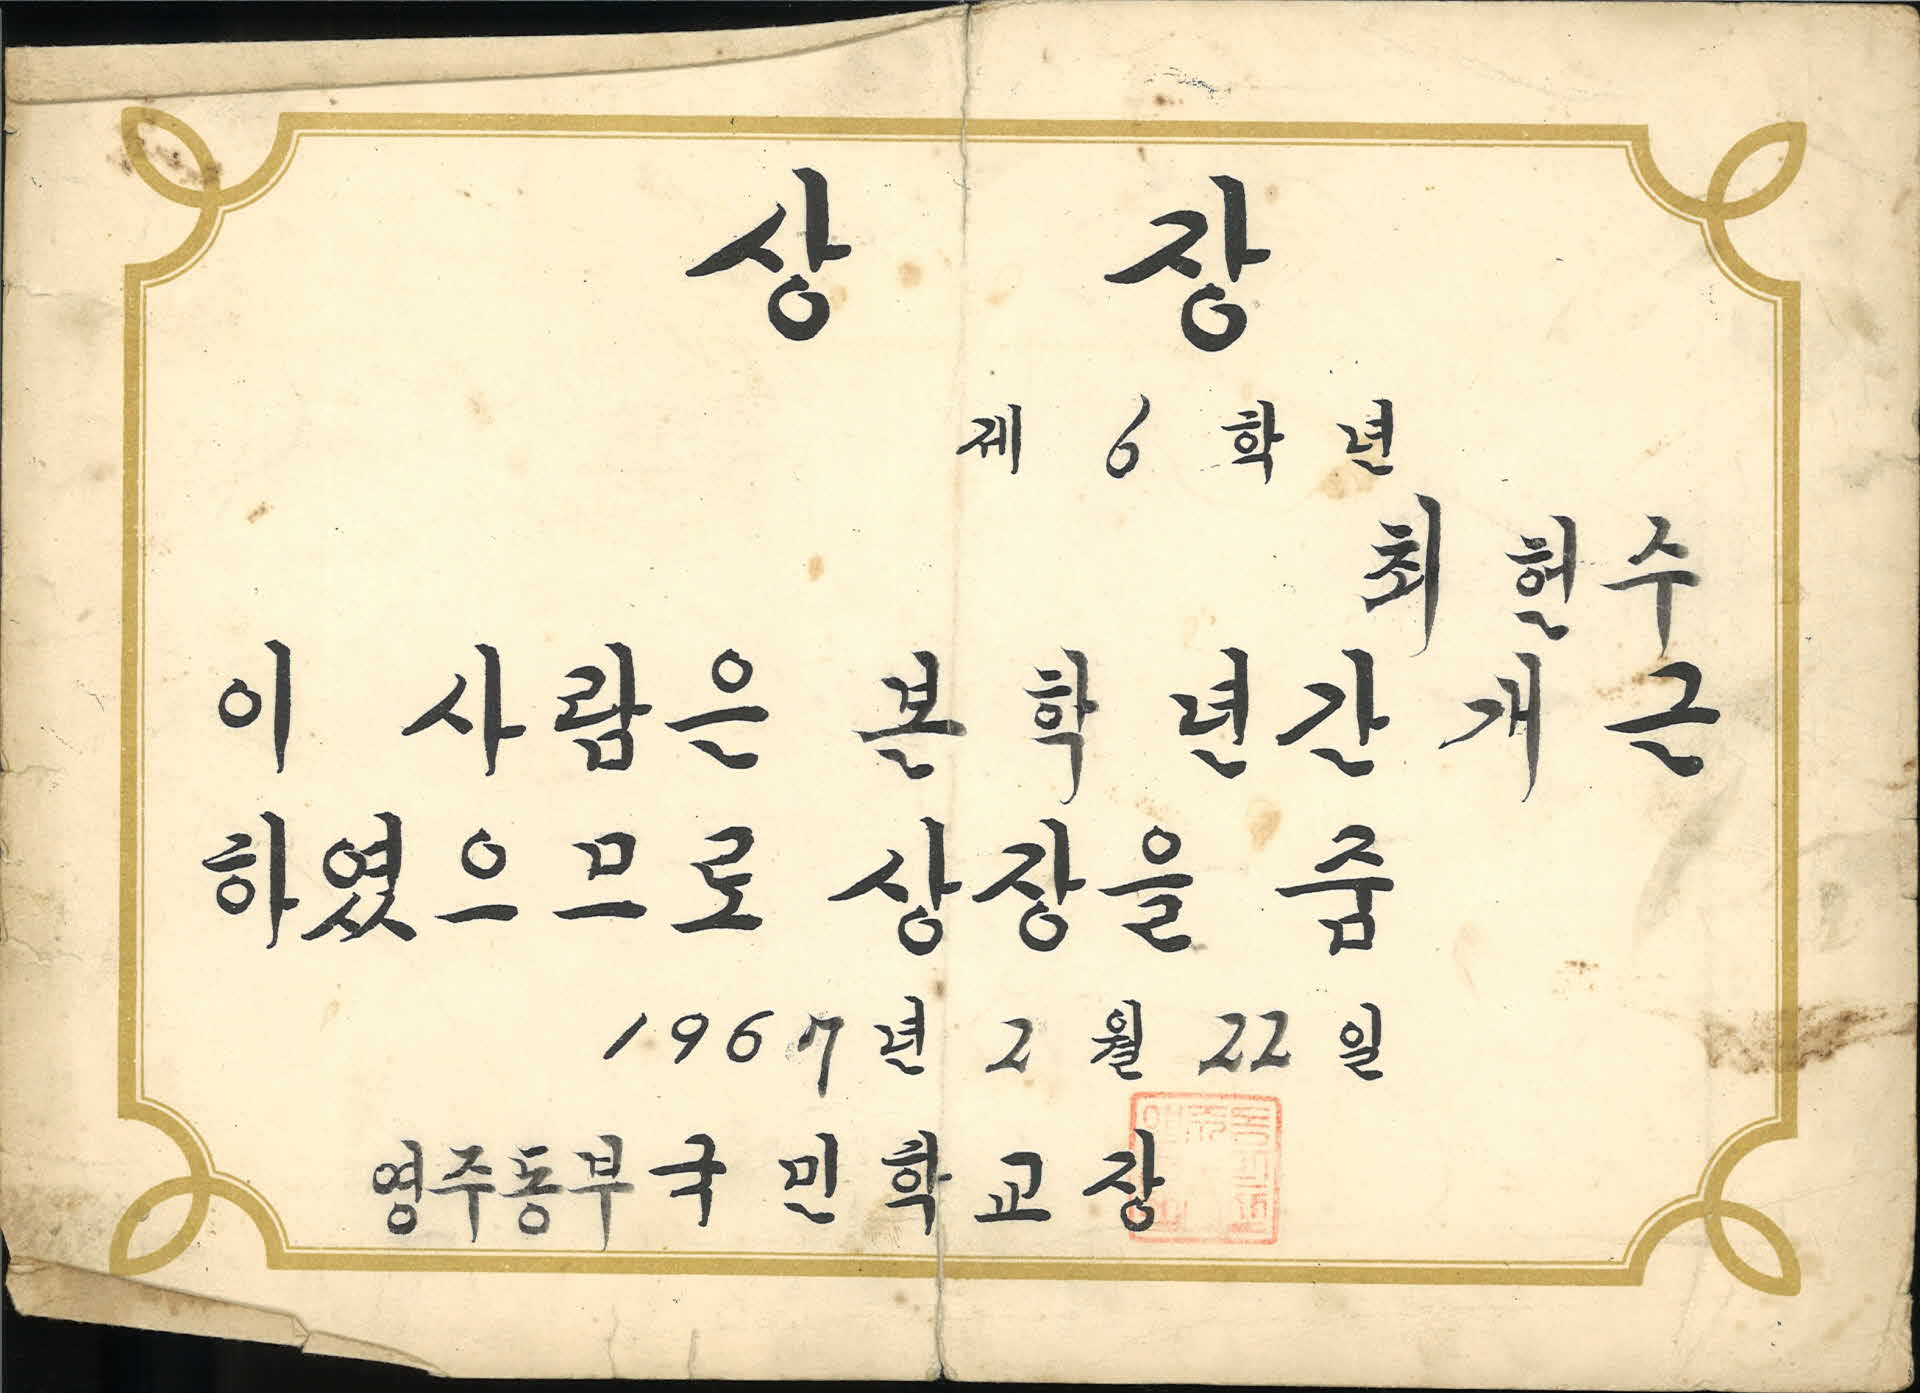 상 장
제 6 학 년
최 현 수
이 사람은 본 학 년간 개 근
하였으므로 상장을 줌
1967년 2월 22일
영주동부국 민 학 교 장